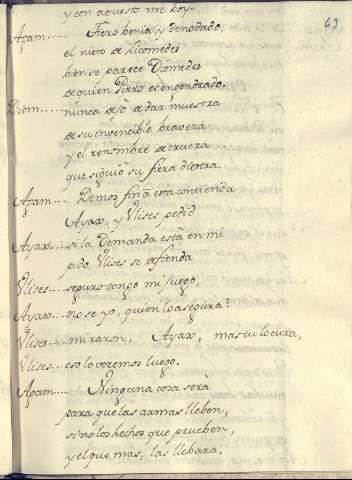 y con aquesto me boy. 69
Agam.... Fiero benia, y denodado,
el nieto de Licomedes
bien se parece Diomedes
de quien Pirro es engendrado.
Diom..... nunca dejó de dar muestra
de su invencible braveza
y el renombre de crueza
que siguio su fiera diestra.
Agam..... Demos fin á esta contienda
Ayax, y Vlises, pedid
Ayax.... si la Demanda está en mi
pido, Vlises se defienda
Vlises.... seguro tengo mi juego,
Ayax... no se yo, quien lo asegura?
Vlises... mi razon, Ayax, mas tu locura,
Vlises.... eso lo veremos luego.
Agam.... Ninguna cosa será
para que las armas lleben,
si no los hechos que prueben,
y el que mas, las llebara.